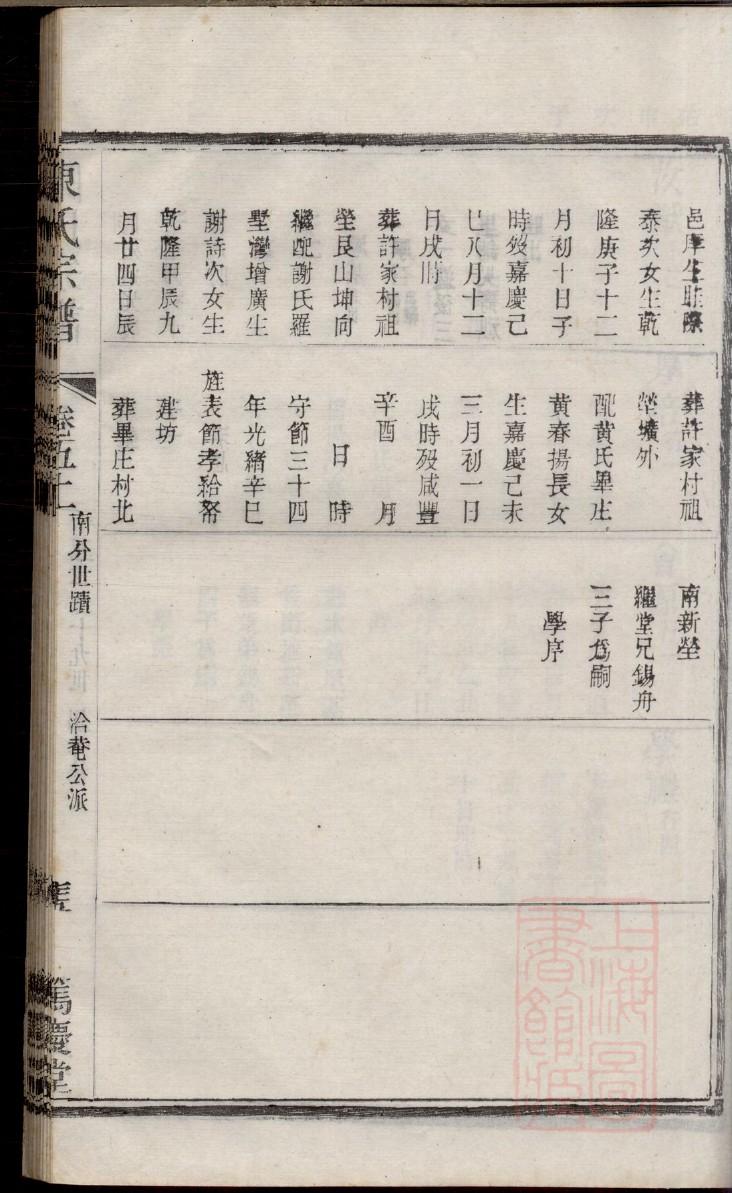 邑庠生
泰次女生乾
隆庚子十二
月初十日子
時歿嘉慶己
巳八月十二
日戌時
葬許家村祖
塋艮山坤向
繼配謝氏羅
墅灣增廣生
謝詩次女生
乾隆甲辰九
月廿四日辰
葬許家村祖
塋壙外
配黃氏畢庄
黃春揚長女
生嘉慶己未
三月初一日
戌時歿咸豐
辛酉 月
日 時
守節三十四
年光緒辛巳
旌表節孝給帑
建坊
葬畢庄村北
南新塋
繼堂兄錫舟
三子爲嗣
學序
陳氏宗譜
卷五十
南分世蹟 十九世 洽菴公派
篤慶堂
上海圖書館藏